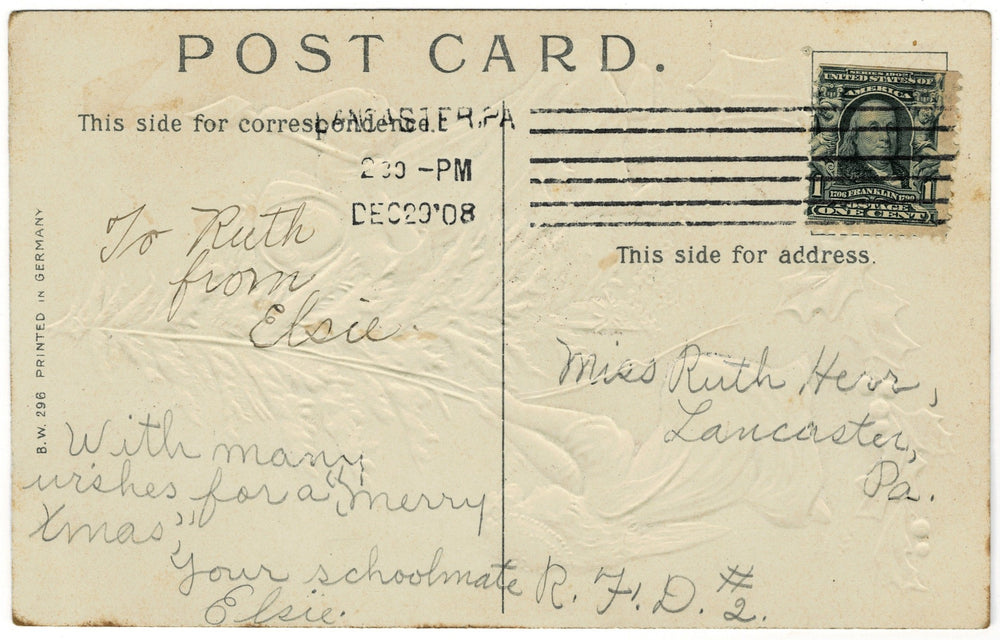 POST CARD.
This side for correspondence.
LANCASTER, PA
2 30 -PM
DEC 23 '08
SERIES 1902
UNITED STATES OF
AMERICA
1706 FRANKLIN 1790
1 1
POSTAGE
ONE CENT
This side for address.
B.W. 296 PRINTED IN GERMANY
To Ruth
from
Elsie.
With many
wishes for a "Merry
Xmas"
Your schoolmate
Elsie.
Miss Ruth Herr,
Lancaster,
Pa.
R. F. D. #2.